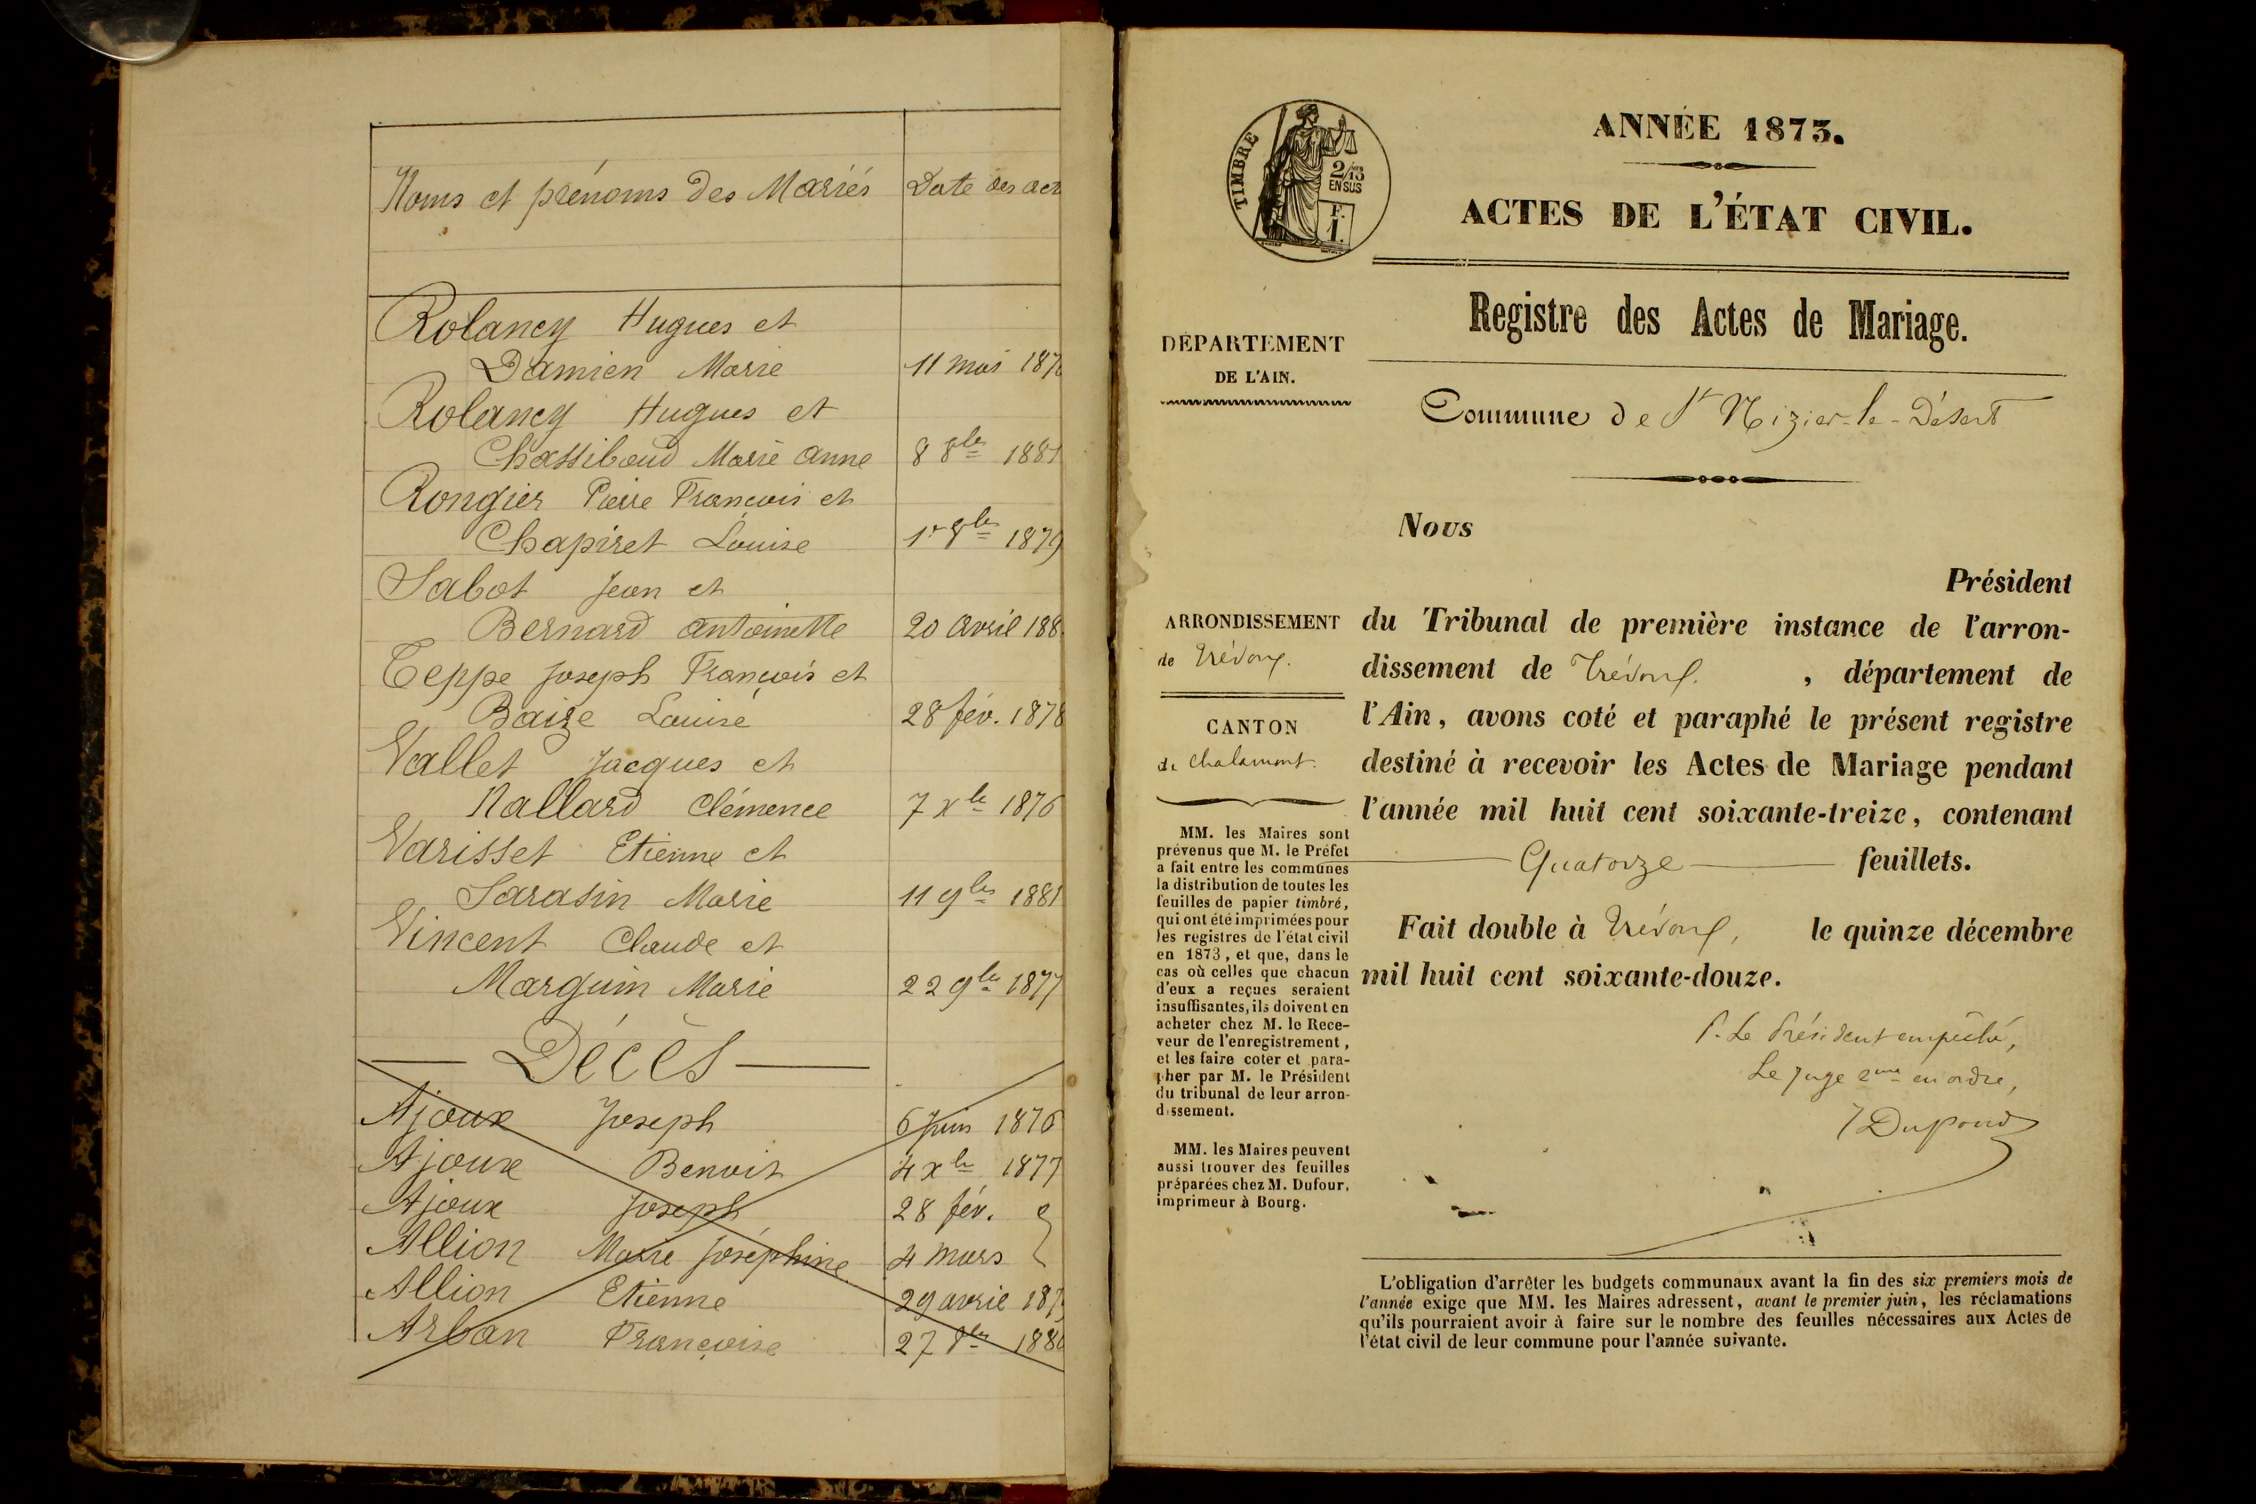 Noms et prénoms des Mariés
Date des act
Rolancy Hugues et
Damien Marie 11 mai 187
Rolancy Hugues et
Chassiboud Marie Anne 8 8bre 1881
Rongier Pierre François et
Chapiret Louise 1er 8bre 1879
Sabot Jean et
Bernard Antoinette 20 avril 188
Teppe Joseph François et
Baize Louise 28 fév. 1878
Vallet Jacques et
Nallard Clémence 7 xbre 1876
Varisset Etienne et
Sarasin Marie 11 9bre 1881
Vincent Claude et
Marguin Marie 22 9bre 1877
Décès
Ajoux Joseph 6 Juin 1876
Ajoux Benoit 4 xbre 1877
Ajoux Joseph 28 fév.
Allion Marie Joséphine 4 mars
Allion Etienne 29 avril 187
Arban Françoise 27 8bre 188
TIMBRE
2/10
EN SUS
F.
1.
ANNÉE 1873.
ACTES DE L'ÉTAT CIVIL.
Registre des Actes de Mariage.
DÉPARTEMENT
DE L'AIN.
Commune de St Nizier-le-Désert
Nous
Président
du Tribunal de première instance de l'arron-
dissement de Trévoux. , département de
l'Ain, avons coté et paraphé le présent registre
destiné à recevoir les Actes de Mariage pendant
l'année mil huit cent soixante-treize, contenant
Quatorze feuillets.
Fait double à Trévoux, le quinze décembre
mil huit cent soixante-douze.
P. Le Président empêché,
Le Juge 2me en ordre,
J Dupond
ARRONDISSEMENT
de Trévoux.
CANTON
de Chalamont.
MM. les Maires sont
prévenus que M. le Préfet
a fait entre les communes
la distribution de toutes les
feuilles de papier timbré,
qui ont été imprimées pour
les registres de l'état civil
en 1873, et que, dans le
cas où celles que chacun
d'eux a reçues seraient
insuffisantes, ils doivent en
acheter chez M. le Rece-
veur de l'enregistrement,
et les faire coter et para-
pher par M. le Président
du tribunal de leur arron-
dissement.
MM. les Maires peuvent
aussi trouver des feuilles
préparées chez M. Dufour,
imprimeur à Bourg.
L'obligation d'arrêter les budgets communaux avant la fin des six premiers mois de
l'année exige que MM. les Maires adressent, avant le premier juin, les réclamations
qu'ils pourraient avoir à faire sur le nombre des feuilles nécessaires aux Actes de
l'état civil de leur commune pour l'année suivante.